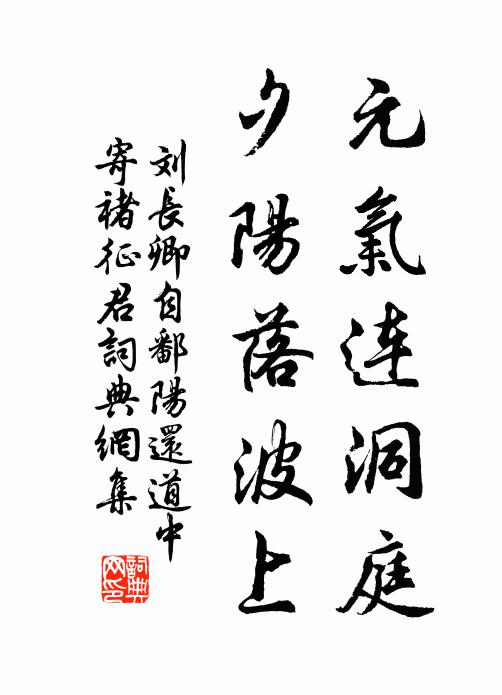 元氣连洞庭
夕陽落波上
刘長卿自鄱陽還道中
寄褚征君詞典網集
詞典網印